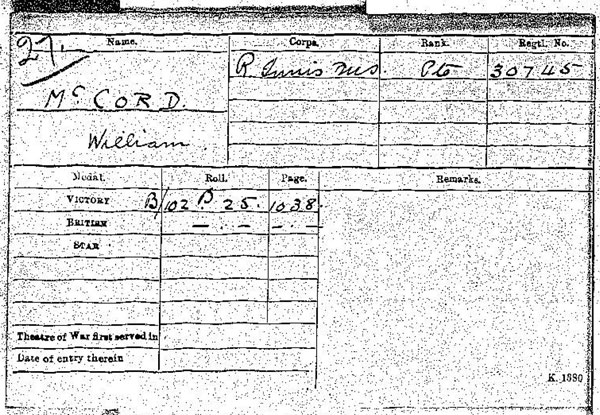 27.
Name. Corps. Rank. Regtl. No.
R Innis Fus. Pte 30745
McCORD.
William.
Medal. Roll. Page. Remarks.
VICTORY B/102 B 25. 1038.
BRITISH — . — — . —
STAR
Theatre of War first served in
Date of entry therein
K. 1380